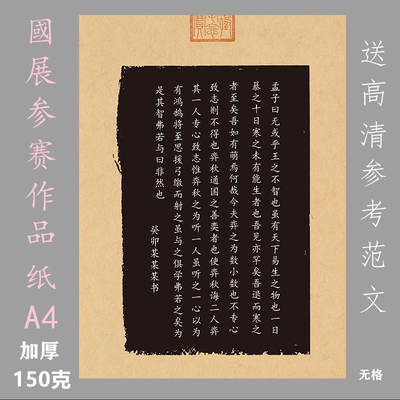 國展参赛作品纸
A4
加厚
150克
送高清参考范文
孟子曰无或乎王之不智也虽有天下易生之物也一日
暴之十日寒之未有能生者也吾见亦罕矣吾退而寒之
者至矣吾如有萌焉何哉今夫弈之为数小数也不专心
致志则不得也弈秋通国之善奕者也使弈秋诲二人弈
其一人专心致志惟弈秋之为听一人虽听之一心以为
有鸿鹄将至思援弓缴而射之虽与之俱学弗若之矣为
是其智弗若与曰非然也
癸卯某某某书
无格